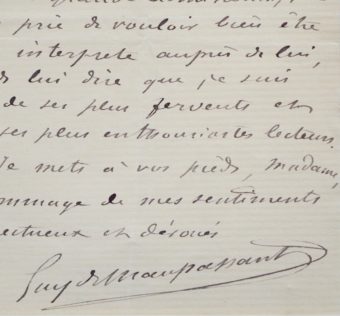 prie de vouloir bien être
interprete auprès de lui,
lui dire que je suis
de ses plus fervents et
ses plus enthousiastes lecteurs.
Je mets à vos pieds, madame,
ommage de mes sentiments
ectueux et dévoués
Guy de Maupassant